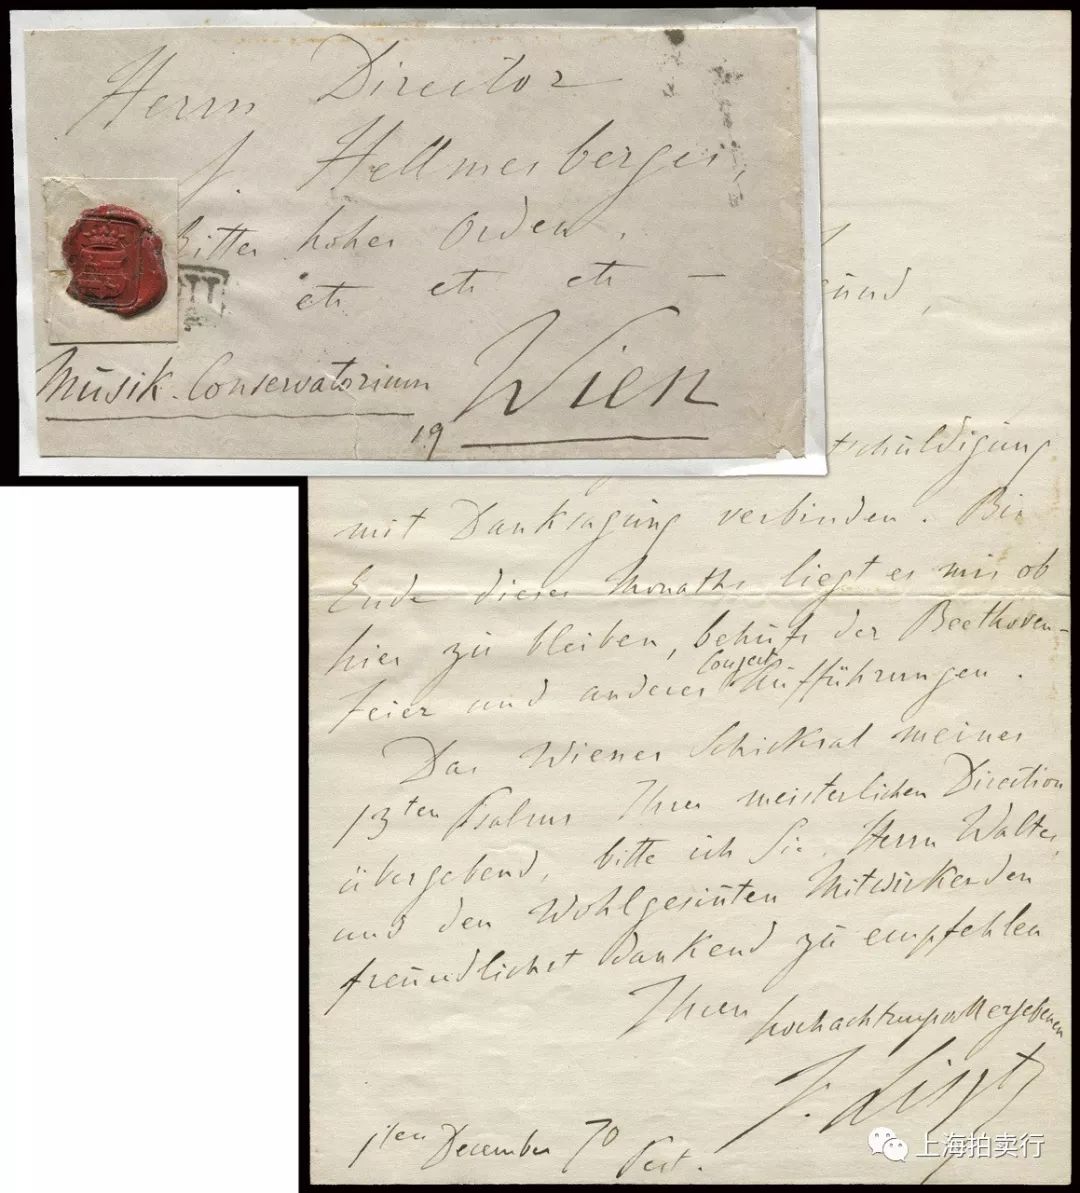 Herrn Director
J. Hellmesberger
Ritter hoher Orden,
etc etc etc –
Musik-Conservatorium
Wien
19
tschuldigung
mit Danksagung verbinden. Bis
Ende dieses Monaths liegt es mir ob
hier zu bleiben, behufs der Beethoven-
Feier und anderer Conzert-Aufführungen.
Das Wiener Schicksal meines
13ten Psalms Ihrer meisterlichen Direction
übergebend, bitte ich Sie, Herrn Walter,
und den Wohlgesinnten Mitwirkenden
freundlichst dankend zu empfehlen
Ihren hochachtungsvoll ergebenen
F. Liszt
1ten December 70
Pest.
上海拍卖行